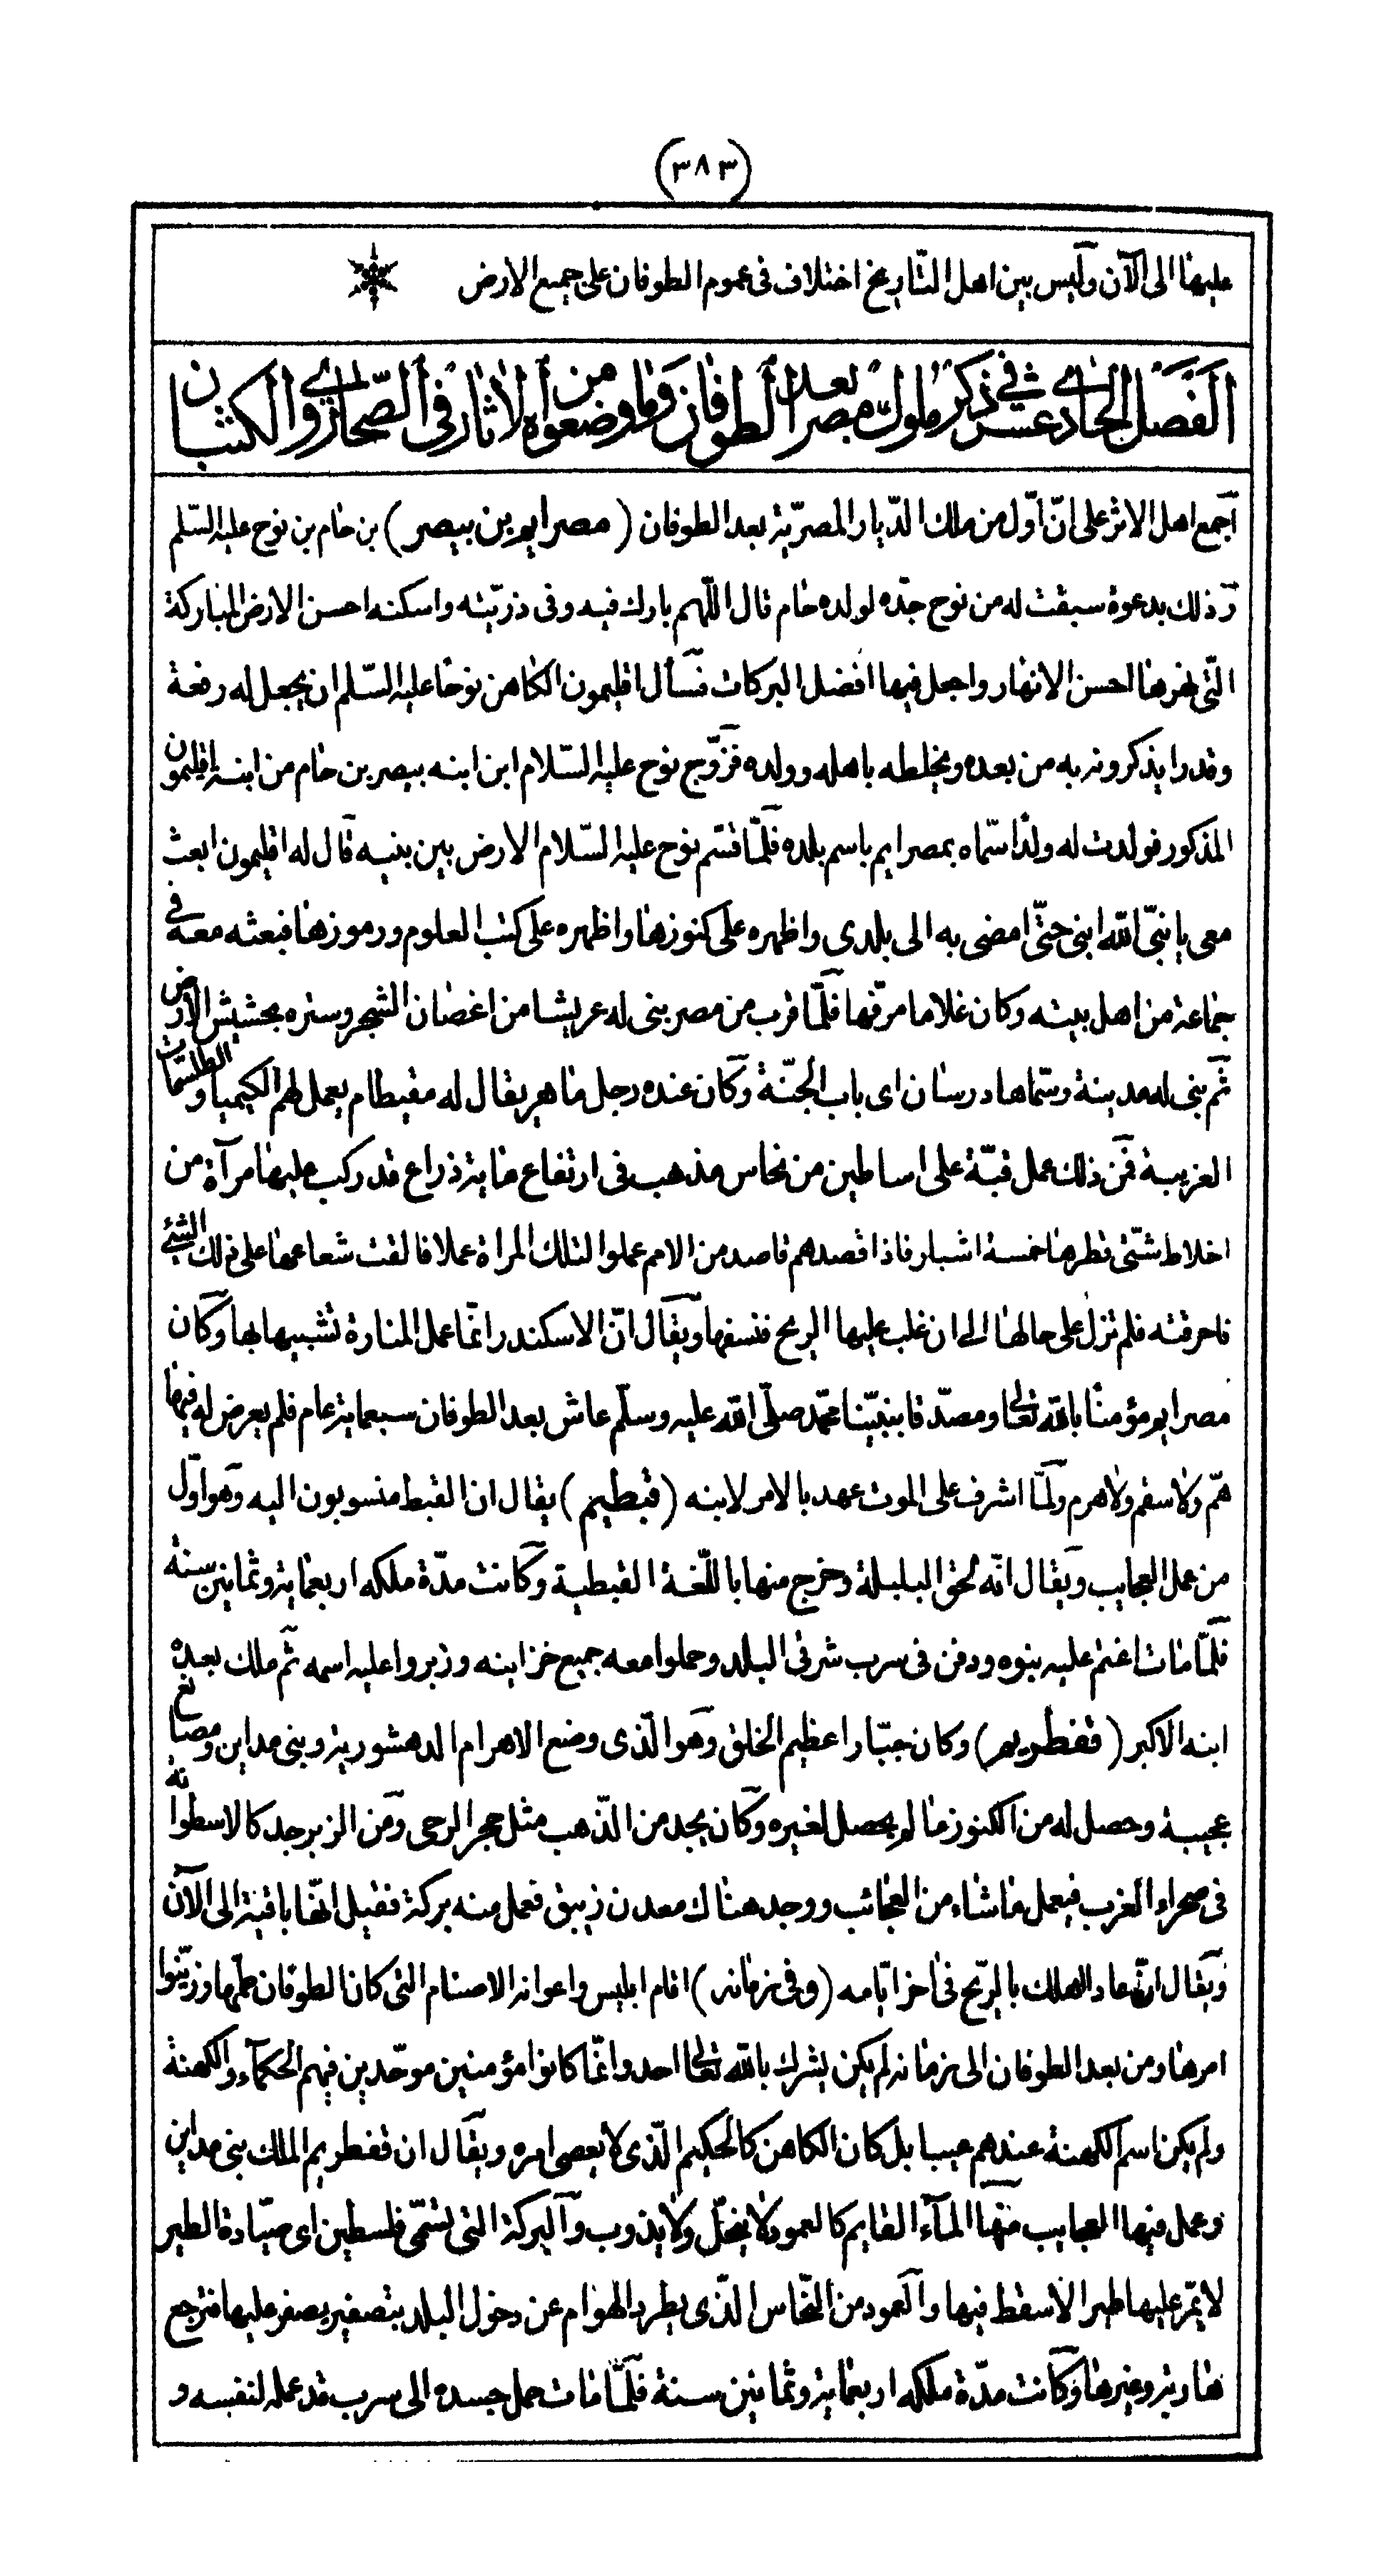 (٣٨٣)
عليها الى الآن وليس بين اهل التاريخ اختلاف فى عموم الطوفان على جميع الارض
الفصل الحادي عشر في ذكر ملوك مصر بعد الطوفان وما وضعوه من الاثار في الصحاري والكثبان
اجمع اهل الاثر على انّ اوّل من ملك الدّيار المصرّية بعد الطوفان (مصرايم بن بيصر) بن حام بن نوح عليه السّلم
وذلك بدعوة سبقت له من نوح جدّه لولده حام قال اللّهم بارك فيه وفى ذريّته واسكنه احسن الارض المباركة
التّى نهرها احسن الانهار واجعل فيها افضل البركات فسأل اقليمون الكاهن نوحًا عليه السّلم ان يجعل له رفعة
وقدرا يذكرونه به من بعده ويخلطه باهله وولده فزوّج نوح عليه السّلام ابن ابنه بيصر بن حام من ابنة اقليمون
المذكور فولدت له ولدًا سمّاه بمصرايم باسم بلده فلمّا قسم نوح عليه السّلام الارض بين بنيه قال له اقليمون ابعث
معى يا نبىّ الله ابنى حتّى امضى به الى بلدى واظهره على كنوزها واظهره على كتب العلوم ورموزها فبعثه معه في
جماعة من اهل بيته وكان غلاما مرفّها فلمّا قرب من مصر بنى له عريشا من اغصان الشجر وستره بحشيش الارض
ثم بنى له مدينة وسمّاها درسان اى باب الجنّة وكان عنده رجل ماهر يقال له مقيطام يعمل لهم الكيميا والطلسمات
الغريبة فمن ذلك عمل قبّة على اساطين من نحاس مذهب فى ارتفاع ماية ذراع قد ركب عليها مرآة من
اخلاط شتّى قطرها خمسة اشبار فاذا قصدهم قاصد من الامم عملوا لتلك المراة عملا فالقت شعاعها على ذلك الشئ
فاحرقته فلم تزل على حالها الى ان غلب عليها الريح فنسفها ويقال انّ الاسكندر انمّا عمل المنارة تشبيها بها وكان
مصرايم مؤمنًا بالله تعالى ومصدّقا بنبيّنا محمّد صلّى الله عليه وسلّم عاش بعد الطوفان سبعماية عام فلم يعرض له فيها
همّ ولا سقم ولا هرم ولمّا اشرف على الموت عهد بالامر لابنه (قبطيم) يقال ان القبط منسوبون اليه وهو اوّل
من عمل العجايب ويقال انّه لحق البلبلة وخرج منها باللّغة القبطية وكانت مدّة ملكه اربعماية وثمانين سنة
فلمّا مات اغتم عليه بنوه ودفن فى سرب شرقى البلد وحملوا معه جميع خزاينه وزبروا عليه اسمه ثم ملك بعده
ابنه الاكبر (قفطريم) وكان جبّارا عظيم الخلق وهو الّذى وضع الاهرام الدهشورية وبنى مداين ومصانع
عجيبة وحصل له من الكنوز ما لم يحصل لغيره وكان يجد من الذّهب مثل حجر الرحى ومن الزبرجد كالاسطوانة
فى صحراء الغرب فيعمل ما شاء من العجائب ووجد هناك معدن زيبق فعمل منه بركة فقيل انّها باقية الى الآن
ويقال انّ عاد اهلك بالرّيح فى اخر ايّامه (وفى زمانه) اقام ابليس واعوانه الاصنام التى كان الطوفان طمّها وزيّنوا
امرها ومن بعد الطوفان الى زمانه لم يكن يشرك بالله تعالى احد وانّما كانوا مؤمنين موحّدين فيهم الحكمآء والكهنة
ولم يكن اسم الكهنة عندهم عيبا بل كان الكاهن كالحكيم الّذى لا يعصى امره ويقال ان قفطريم الملك بنى مداين
وعمل فيها العجايب منها المآء القايم كالعمود لا ينحلّ ولا يذوب والبركة التى تسمّى فلسطين اى صيّادة الطير
لا يمّر عليها طير الا سقط فيها والعمود من النّحاس الّذى يطرد الهوام عن دخول البلد بتصفير يصفر عليها فترجع
هاربة وغيرها وكانت مدّة ملكه اربعماية وثمانين سنة فلمّا مات حمل جسده الى سرب قد عمله لنفسه و